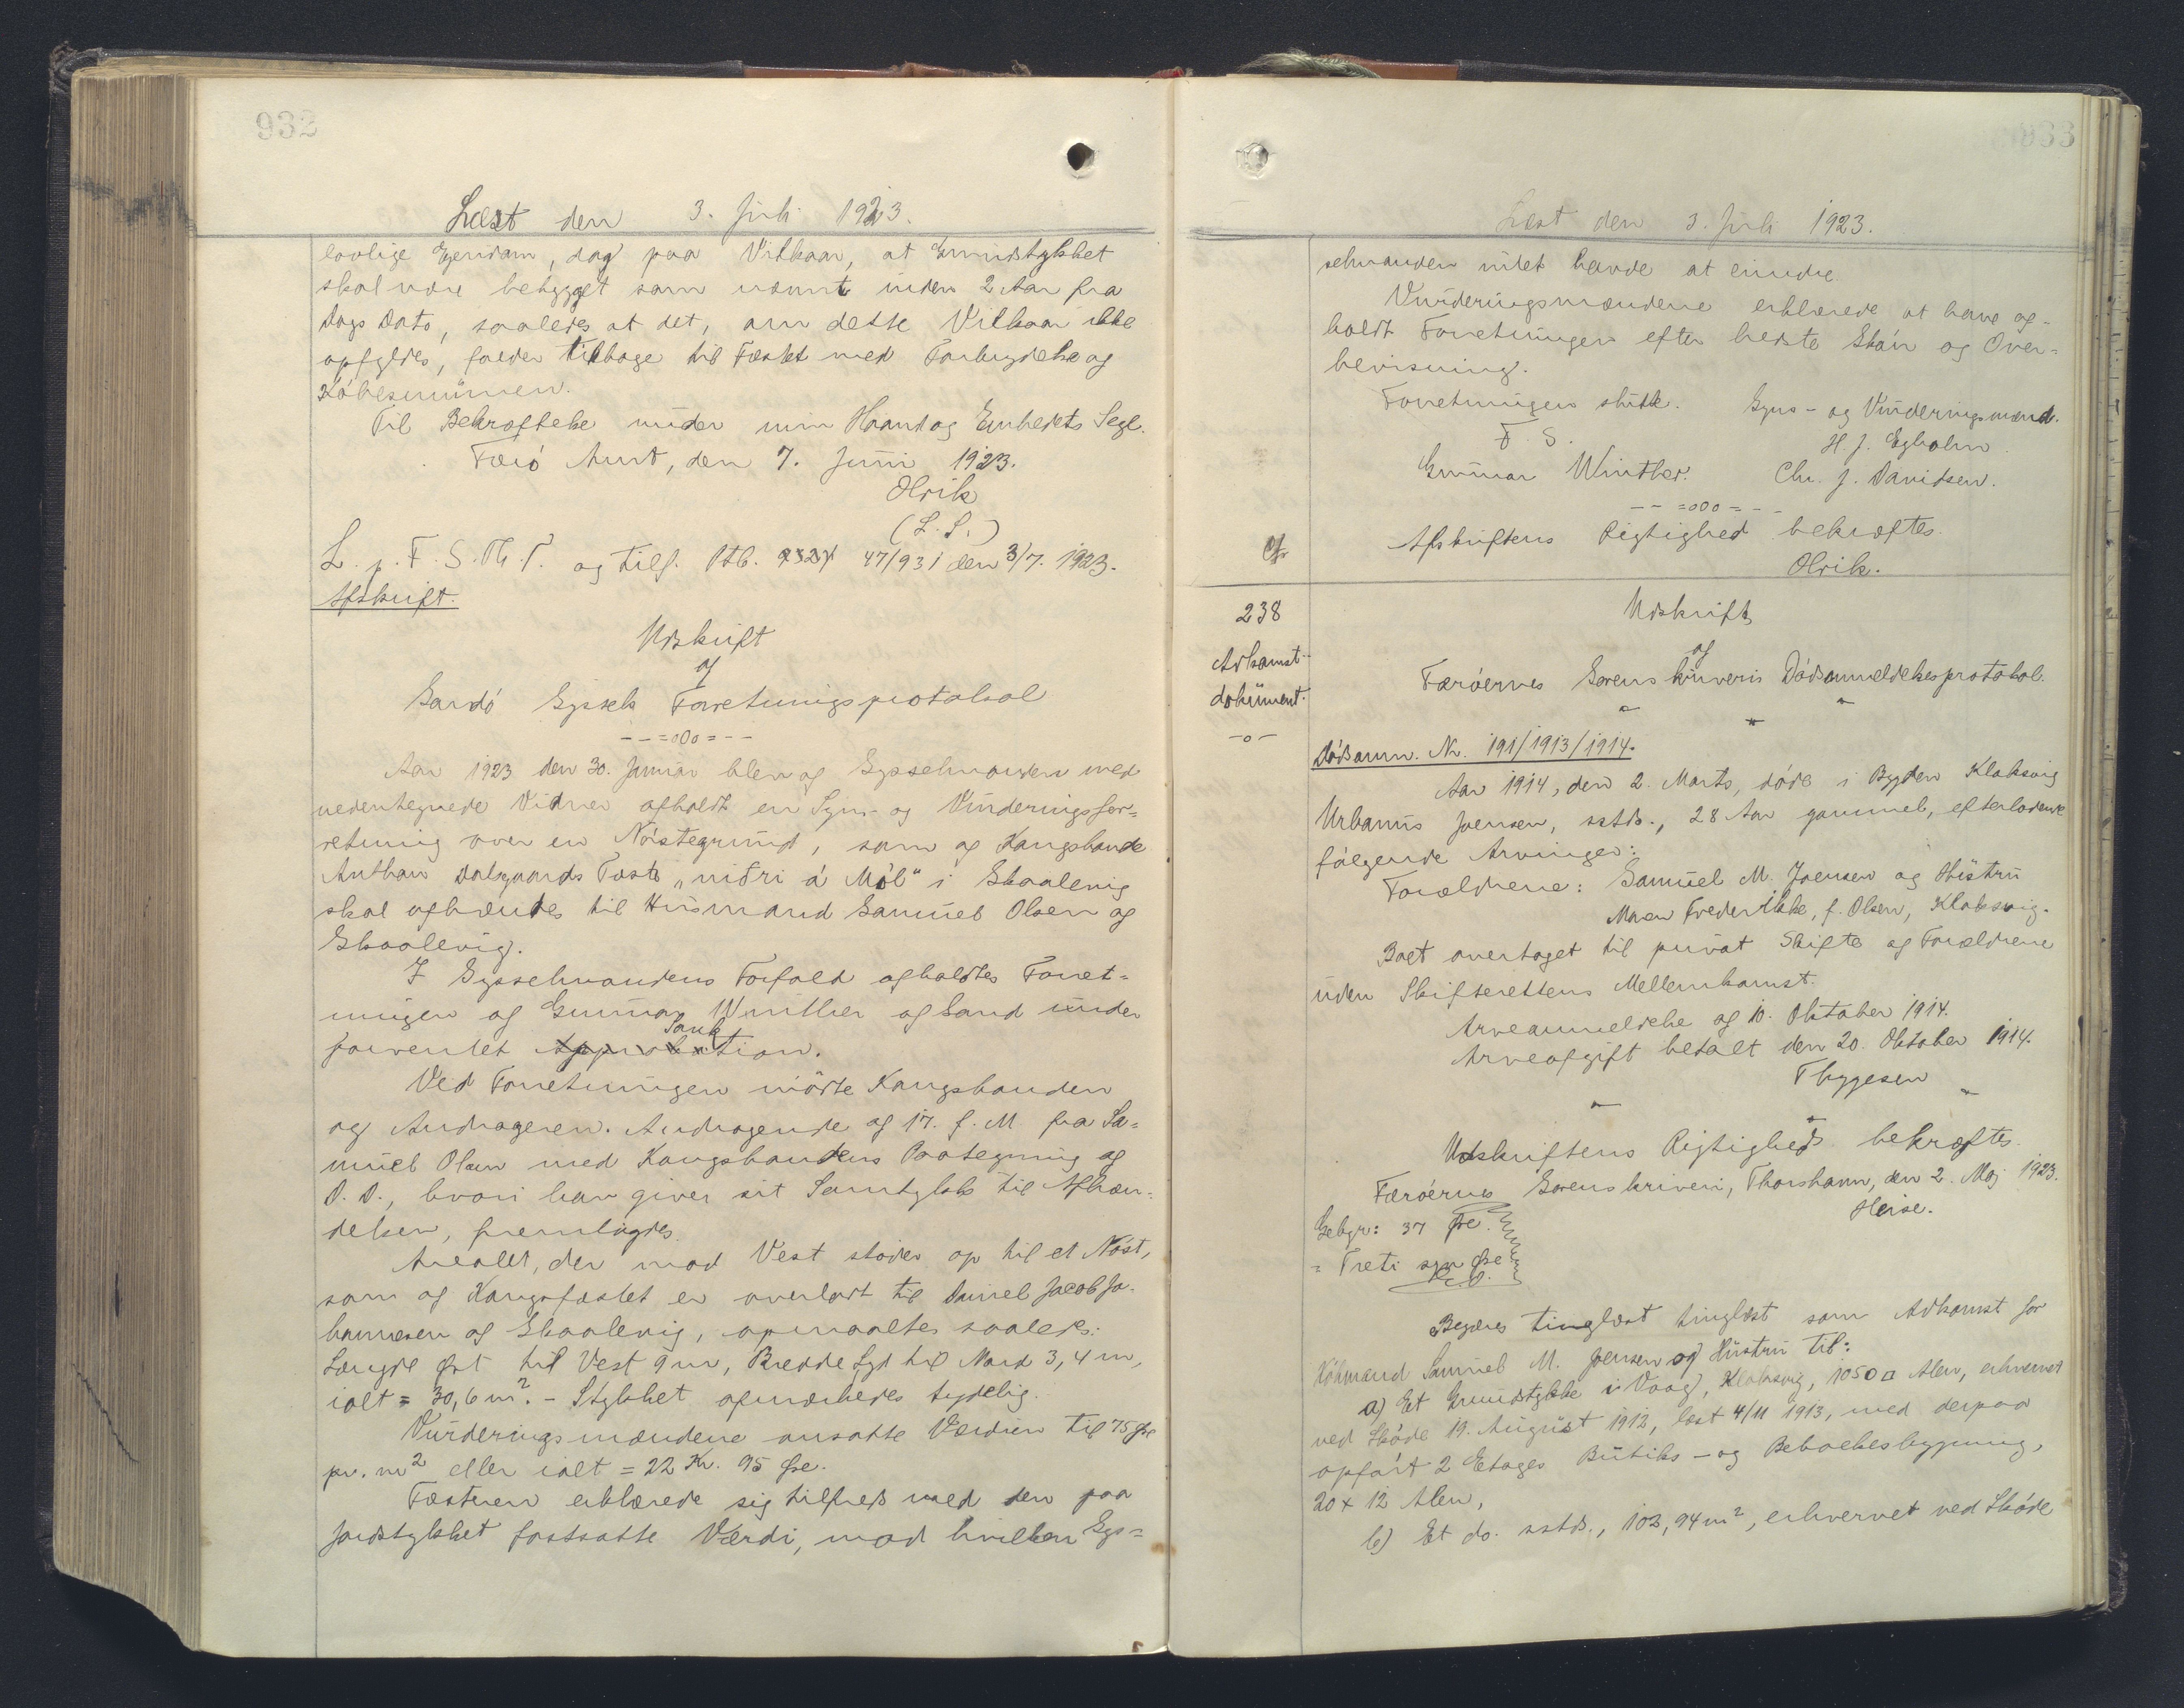 932
Læst den 3. Juli 1923.
lovlige Ejendom, dog paa Vilkaar, at Grundstykket
skal være bebygget som nævnt inden 2 Aar fra
Dags Dato, saaledes at det, om dette Vilkaar ikke
opfyldes, falder tilbage til Fæstet med Forbrydelse og
Købesummen.
Til Bekræftelse under min Haand og Embedets Segl.
Færø Amt, den 7. Juni 1923.
Olrik
(L. S.)
L. p. F. S. Th. T. og tilf. Ptb. 47/931 den 3/7. 1923.
Afskrift.
Udskrift
af
Sandø Syssels Forretningsprotokol
--=oOo=--
Aar 1923 den 30. Januar blev af Sysselmanden med
undertegnede Vidner afholdt en Syns- og Vurderingsfor=
retning over en Nøstegrund, som af Kongsbonde
Anthon Dalsgaards Fæste „niðri á Møl" i Skaalevig
skal afhændes til Husmand Samuel Olsen af
Skaalevig.
I Sysselmandens Forfald afholdtes Forret=
ningen af Gunnar Winther af Sand under
forventet Approbation. Sanktion.
Ved Forretningen mødte Kongsbonden
og Andrageren. Andragende af 17. f. M. fra Sa=
muel Olsen med Kongsbondens Paategning af
D. D., hvori han giver sit Samtykke til Afhæn=
delsen, fremlagdes.
Arealet, der mod Vest støder op til et Nøst,
som af Kongsfæstet er overladt til Daniel Jacob Jo-
hannesen af Skaalevig, opmaaltes saaledes:
Længde Øst til Vest 9 m, Bredde Syd til Nord 3,4 m,
ialt = 30,6 m². - Stykket afmærkedes tydelig.
Vurderingsmændene ansatte Værdien til 75 Øre
pr. m² eller ialt = 22 Kr. 95 Øre.
Fæsteren erklærede sig tilfreds med den paa
Jordstykket fastsatte Værdi, mod hvilken Sys=
933
Læst den 3. Juli 1923.
selmanden intet havde at erindre.
Vurderingsmændene erklærede at have af-
holdt Forretningen efter bedste Skøn og Over=
bevisning.
Forretningen sluttet. Syns- og Vurderingsmænd.
F. S. H. J. Egholm.
Gunnar Winther. Chr. J. Davidsen.
--=oOo=--
Afskriftens Rigtighed bekræftes.
Olrik.
238
Adkomst-
dokument.
-o-
Udskrift
af
Færøernes Sorenskriveris Dødsanmeldelsesprotokol.
Dødsanm. Nr. 191/1913/1914.
Aar 1914, den 2. Marts, døde i Bygden Klaksvig
Urbanus Joensen, sstds., 28 Aar gammel, efterladende
følgende Arvinger:
Forældrene: Samuel M. Joensen og Hustru
Maren Frederikke, f. Olsen, Klaksvig.
Boet overtaget til privat Skifte af Forældrene
uden Skifterettens Mellemkomst.
Arveanmeldelse af 10. Oktober 1914.
Arveafgift betalt den 20. Oktober 1914.
Thygesen
Udskriftens Rigtighed bekræftes.
Færøernes Sorenskriveri, Thorshavn, den 2. Maj 1923.
Heise.
Gebyr: 37 Øre.
= Treti syv Øre
Begæres tinglæst tinglæst som Adkomst for
Købmand Samuel M. Joensen og Hustru til:
a) Et Grundstykke i Vaag, Klaksvig, 1050 □ Alen, erhvervet
ved Skøde 19. August 1912, læst 4/11 1913, med derpaa
opført 2 Etages Butiks- og Beboelsesbygning,
20 x 12 Alen,
b) Et do. sstds., 103,94 m², erhvervet ved Skøde